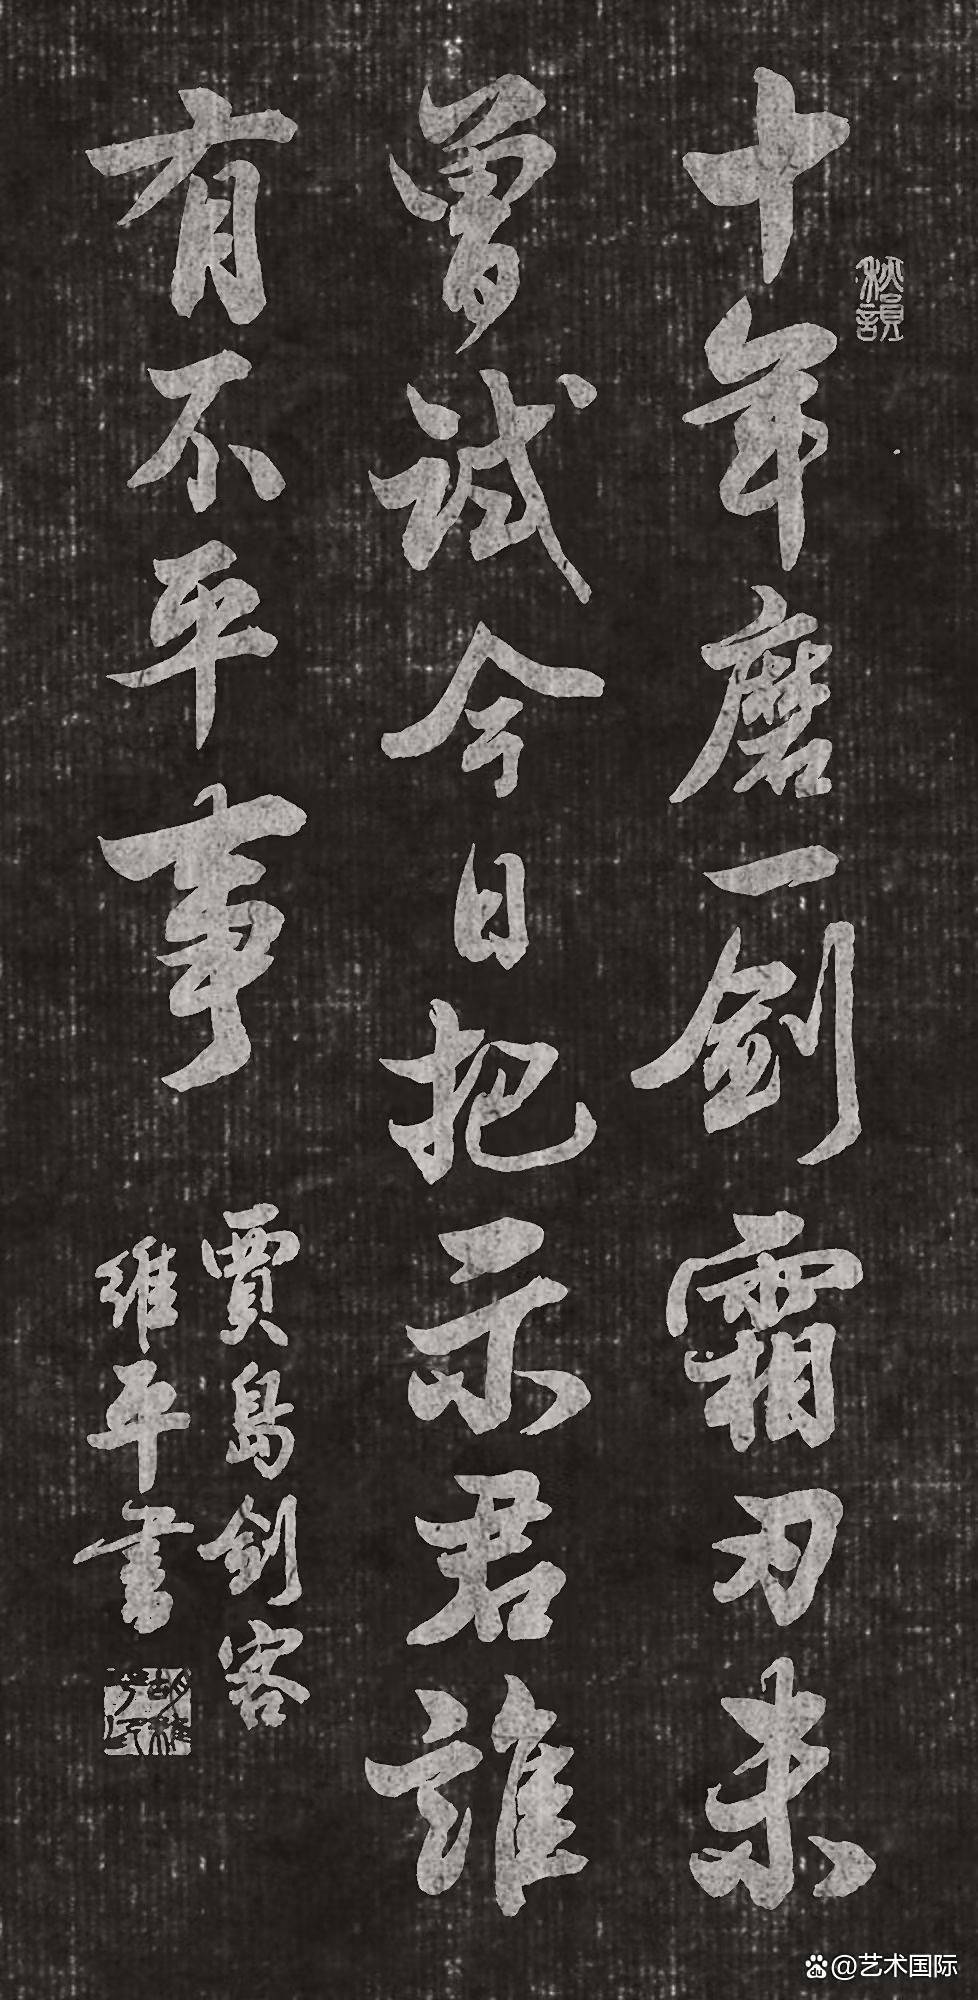 十年磨一劍霜刃未
曾試今日把示君誰
有不平事
賈島劍客
維平書
秋韻
@艺术国际